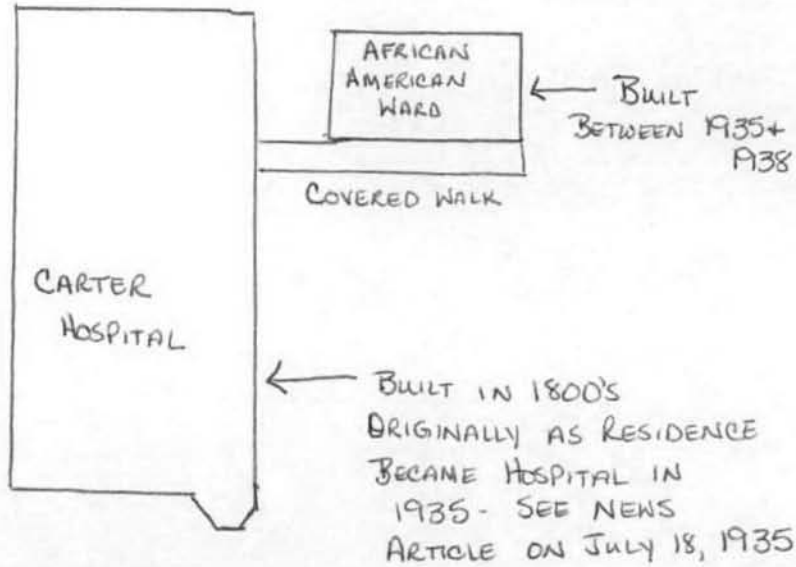 AFRICAN
AMERICAN
WARD
BUILT
BETWEEN 1935+
1938
COVERED WALK
CARTER
HOSPITAL
BUILT IN 1800'S
ORIGINALLY AS RESIDENCE
BECAME HOSPITAL IN
1935- SEE NEWS
ARTICLE ON JULY 18, 1935